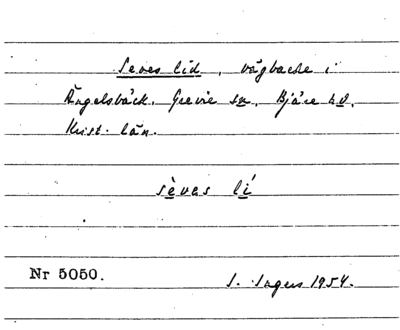 Seves lid, vägbacke i
Ängelsbäck. Grevie sn. Bjäre hd.
Krist. län.
sèvas lí
Nr 5050.
S. Ingers 1954.